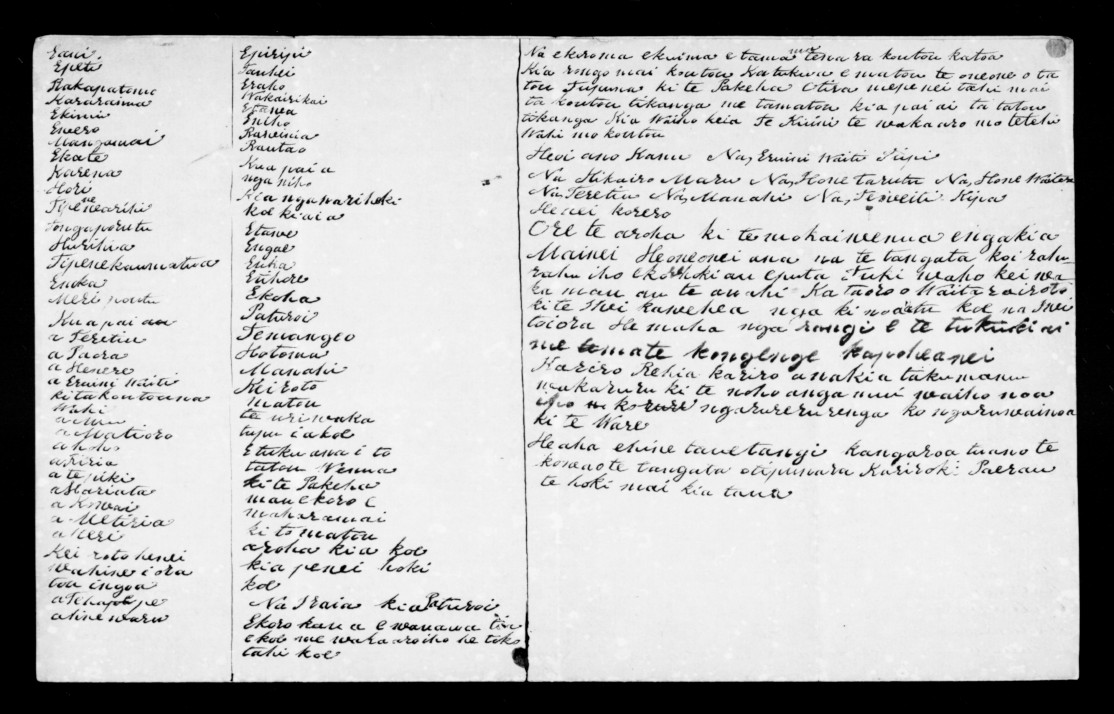 Eani.
Epeti
Hakapatoma
Kararaima
Ekimi
Ewero
Mangamai
Ekate
Karena
Hori
Tipene neariki
Tongaporutu
Hurihia
Tipene kaumatua
Enuka
Meri poutu
Kua pai au
a Teretiu
a Paora
a Henere
a Eruini Waiti
ki ta koutou na
Wahi
a Matioro
a hoho
a Piria
a te piki
a Hariata
a Kowai
a Metiria
a Neri
Kei roto henei
wahine i ora
tou ingoa
a hinewaru
Epiripi
Tauhei
Eraho
Wakairikai
Etawa
Eniho
Rawinia
Rautao
Kua pai a
nga niho
Kia ngawari hoki
koe ki aia
Etawe
Engae
Enika
Etihore
Ekoha
Paturoi
Temangeo
Hotoma
Manahi
Kiroto
matou
te uri waka
tupu i a koe
E tuku ana i to
tatou Wenua
ki te Pakeha
man e koro E
maharamai
ki to matou
aroha kia koe
kia penei hoki
koe
Na Iraia kia Paturoi
Ekoro kau a e wanawa tini
e koe me wakaaro iho he toko
tahi koe
Na ekoroma ekuima e tama ma tena ra koutou katoa
Kia rongo mai koutou Ka tukua e matou te oneone o ta
tou Tupuna ki te Pakeha Otira me penei tahi mai
ta koutou tikanga me ta matou kia pai ai ta tatou
tikanga Kia Waiho keia Te Kuini te wakaaro mo tetehi
Wahi mo koutou
Heoi ano Kamu Na, Eruini Waiti Piripi
Na Hikairo Maru Na, Hone taruta Na, Hone Waitere
Na, Teretiu Na, Manahi Na, Tiweiti Kipa
Henei korero
E te aroha ki te mokai wenua e ngakia
Mainei He oneonei ana na te tangata koi rahu
rahu iho e kore hoki au e puta Tuki waho kei wa
ka man au te awhi Ka taoro o Waitara i roto
ki te Iwi kawehea nga ki noatu koe na Iwi
toiora He maha nga rangi E te tukuki ai
me te mate kongenge kapohea nei
Kariro Rehia kariro anakia taku manu
wakaruru ki te noho anga nui waiho noa
iho ngarureru renga ko ngaruwainoa
ki te Ware
He aha ehine taue tangi kangaroa Wano te
koroaote tangata otipuwara Kariroki Paerau
te hoki mai kia taua